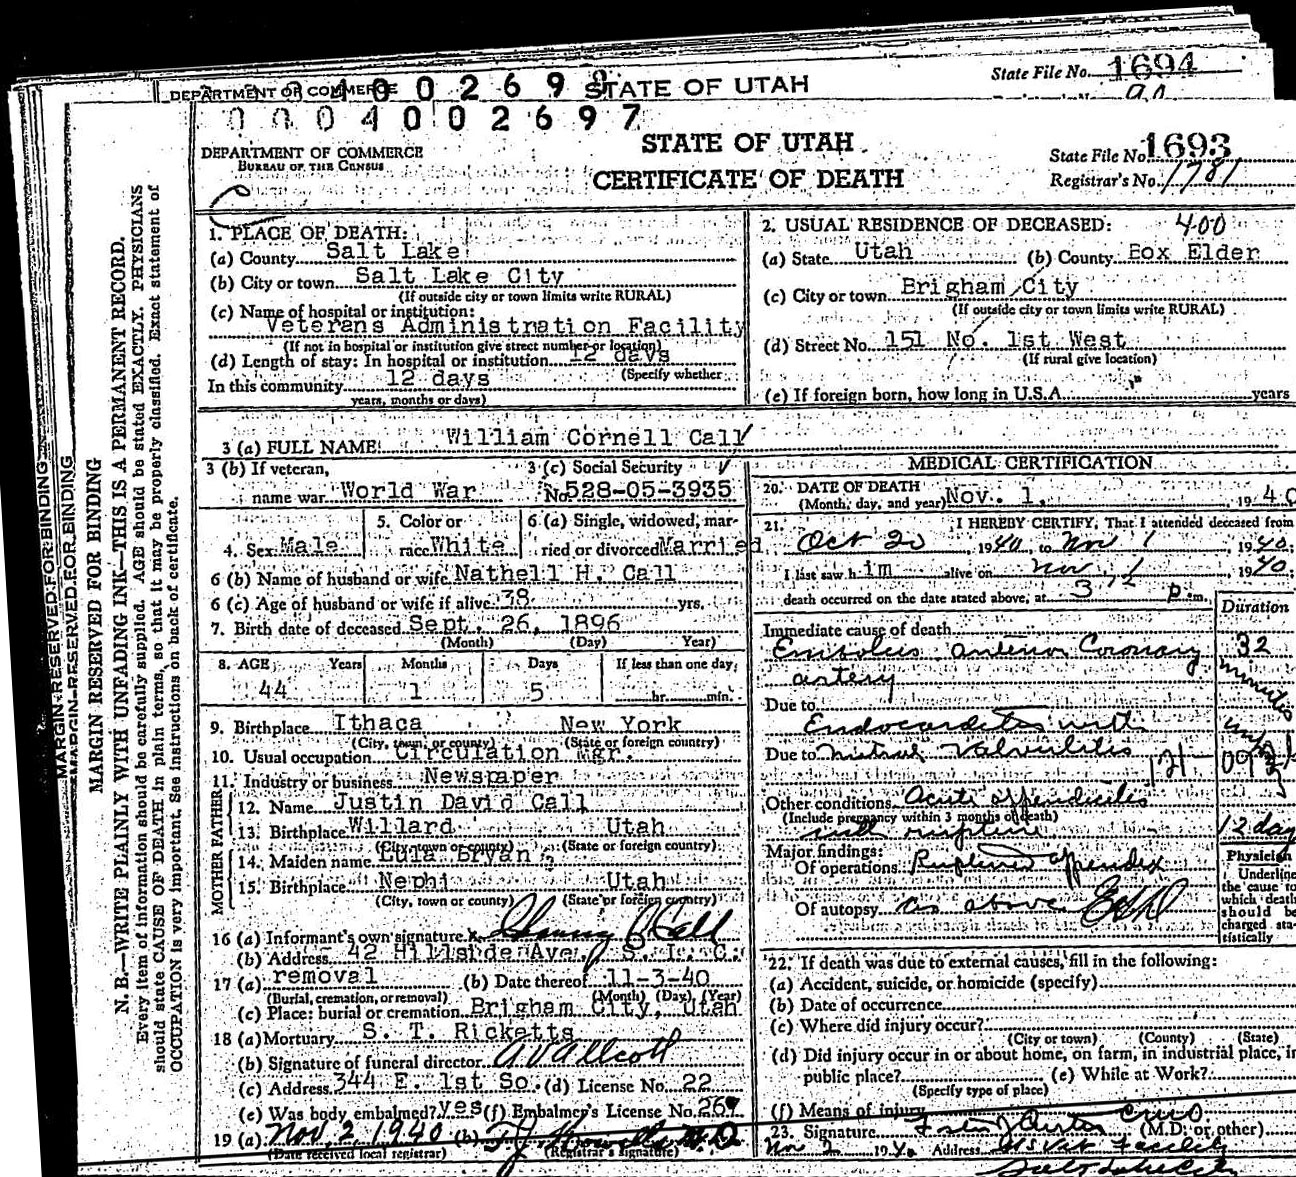 DEPARTMENT OF COMMERCE
STATE OF UTAH
State File No. 1694
0004002697
DEPARTMENT OF COMMERCE
BUREAU OF THE CENSUS
STATE OF UTAH
CERTIFICATE OF DEATH
State File No. 1693
Registrar's No. 1781
MARGIN RESERVED FOR BINDING
MARGIN RESERVED FOR BINDING
MARGIN RESERVED FOR BINDING
N. B.—WRITE PLAINLY WITH UNFADING INK—THIS IS A PERMANENT RECORD.
Every item of information should be carefully supplied. AGE should be stated EXACTLY. PHYSICIANS
should state CAUSE OF DEATH in plain terms, so that it may be properly classified. Exact statement of
OCCUPATION is very important. See instructions on back of certificate.
1. PLACE OF DEATH:
(a) County Salt Lake
(b) City or town Salt Lake City
(If outside city or town limits write RURAL)
(c) Name of hospital or institution:
Veterans Administration Facility
(If not in hospital or institution give street number or location)
(d) Length of stay: In hospital or institution 12 days
(Specify whether
In this community 12 days
years, months or days)
2. USUAL RESIDENCE OF DECEASED: 400
(a) State Utah (b) County Box Elder
(c) City or town Brigham City
(If outside city or town limits write RURAL)
(d) Street No. 151 No. 1st West
(If rural give location)
(e) If foreign born, how long in U.S.A. years
3 (a) FULL NAME William Cornell Call
3 (b) If veteran, name war World War
3 (c) Social Security No. 528-05-3935
4. Sex Male
5. Color or race White
6 (a) Single, widowed, married or divorced Married
6 (b) Name of husband or wife Nathell H. Call
6 (c) Age of husband or wife if alive 38 yrs.
7. Birth date of deceased Sept. 26, 1896
(Month) (Day) Year)
8. AGE Years Months Days If less than one day
44 1 5 hr. min.
9. Birthplace Ithaca New York
(City, town, or county) (State or foreign country)
10. Usual occupation Circulation Mgr.
11. Industry or business Newspaper
FATHER
12. Name Justin David Call
13. Birthplace Willard Utah
(City, town or county) (State or foreign country)
MOTHER
14. Maiden name Lula Bryan
15. Birthplace Nephi Utah
(City, town or county) (State or foreign country)
16 (a) Informant's own signature Call
(b) Address 42 Hillside Ave., S. L. C.
17 (a) removal (b) Date thereof 11-3-40
(Burial, cremation, or removal) (Month) (Day) (Year)
(c) Place: burial or cremation Brigham City, Utah
18 (a) Mortuary S. T. Ricketts
(b) Signature of funeral director
(c) Address 344 E. 1st So. (d) License No. 22
(e) Was body embalmed? yes (f) Embalmer's License No.
19 (a) Nov. 2, 1940 (b)
(Date received local registrar) (Registrar's signature)
MEDICAL CERTIFICATION
20. DATE OF DEATH
(Month, day, and year) Nov. 1, 1940
21. I HEREBY CERTIFY, That I attended deceased from
Oct 20, 1940, to Nov 1, 1940.
I last saw him alive on Nov 1, 1940.
death occurred on the date stated above, at p.m.
Duration
Immediate cause of death
Embolus anterior Coronary artery 32 minutes
Due to Endocarditis with
Due to mitral valvulitis
Other conditions Acute appendicitis
(Include pregnancy within 3 months of death)
with rupture 12 days
Major findings:
Of operations Ruptured appendix
Of autopsy as above
Physician
Underline
the cause to
which death
should be
charged sta-
tistically
22. If death was due to external causes, fill in the following:
(a) Accident, suicide, or homicide (specify)
(b) Date of occurrence
(c) Where did injury occur?
(City or town) (County) (State)
(d) Did injury occur in or about home, on farm, in industrial place, in
public place? (e) While at Work?
(Specify type of place)
(f) Means of injury
23. Signature (M.D. or other)
Address Vet Facility
Salt Lake City